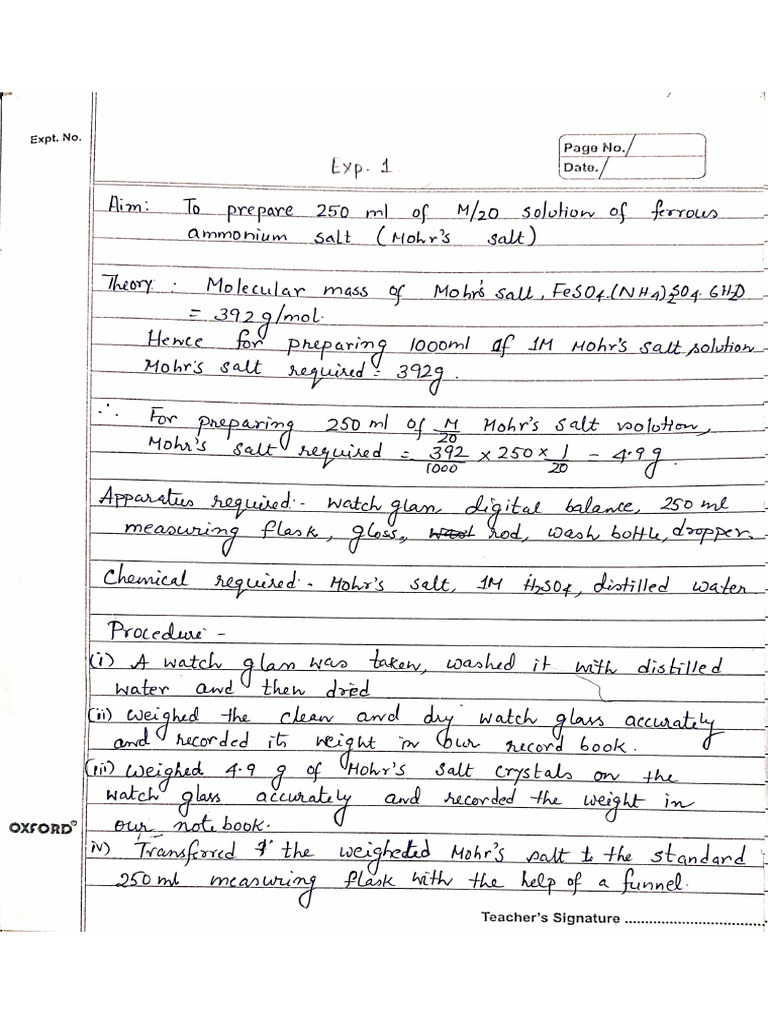 Expt. No.
Page No.
Date.
Exp. 1
Aim: To prepare 250 ml of M/20 solution of ferrous
ammonium salt (Mohr's salt)
Theory: Molecular mass of Mohr's salt, FeSO4.(NH4)2SO4.6H2O
= 392 g/mol.
Hence for preparing 1000ml of 1M Mohr's salt solution
Mohr's salt required = 392g.
∴ For preparing 250 ml of M/20 Mohr's salt solution,
Mohr's salt required = 392/1000 × 250 × 1/20 = 4.9 g.
Apparatus required:- watch glass, digital balance, 250 ml
measuring flask, gloss, rod, wash bottle, dropper.
Chemical required - Mohr's salt, 1M H2SO4, distilled water
Procedure -
(i) A watch glass was taken, washed it with distilled
water and then dried
(ii) weighed the clean and dry watch glass accurately
and recorded its weight in our record book.
(iii) weighed 4.9 g of Mohr's salt crystals on the
watch glass accurately and recorded the weight in
our notebook.
OXFORD
iv) Transferred the weigheted Mohr's salt to the standard
250 ml measuring flask with the help of a funnel.
Teacher's Signature ..................................